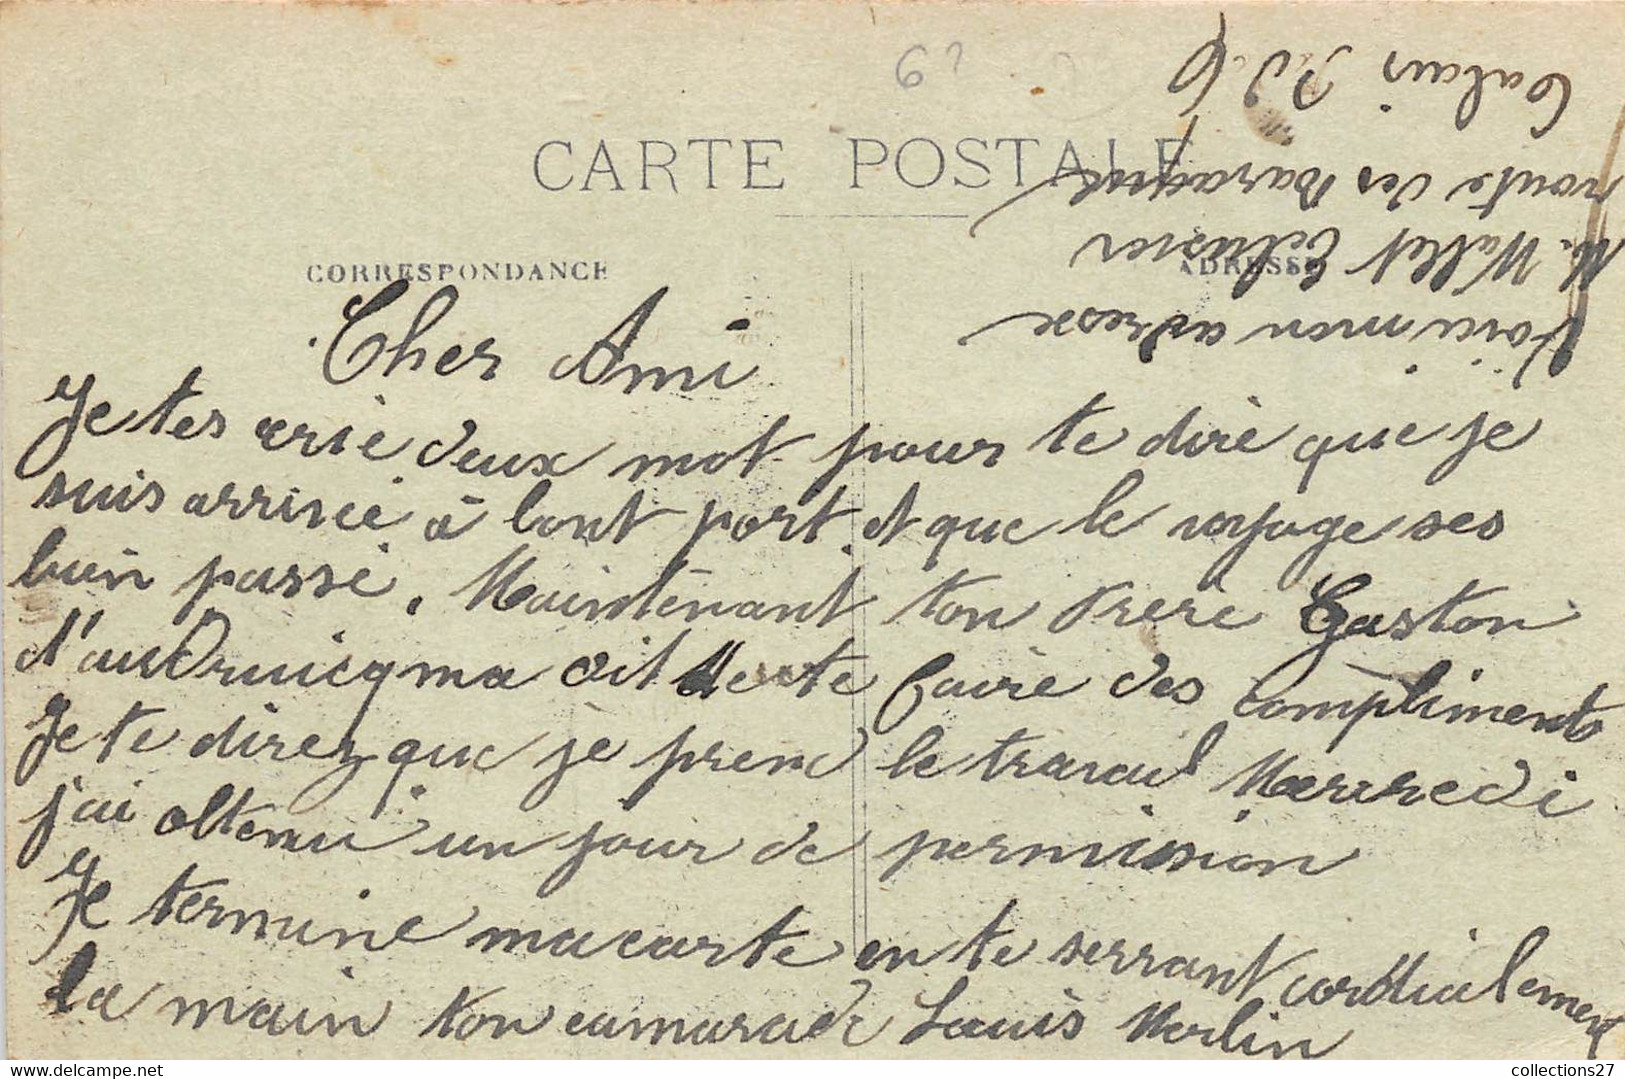 6?
CARTE POSTALE
CORRESPONDANCE
ADRESSE
Cher Ami
Je tes crie deux mot pour te dire que je
suis arrivée à bont port et que le voyage ses
bien passé. Maintenant ton frère Gaston
d'audruicq ma dit de te faire des compliments
Je te direz que je prend le travail Mercredi
j'ai obtenu un jour de permission
Je termine ma carte en te serrant cordialement
la main ton camarade Louis Merlin
Voici mon adresse
M. Wallet Eclusier
route des Baraques
Calais P.d.C
collections27